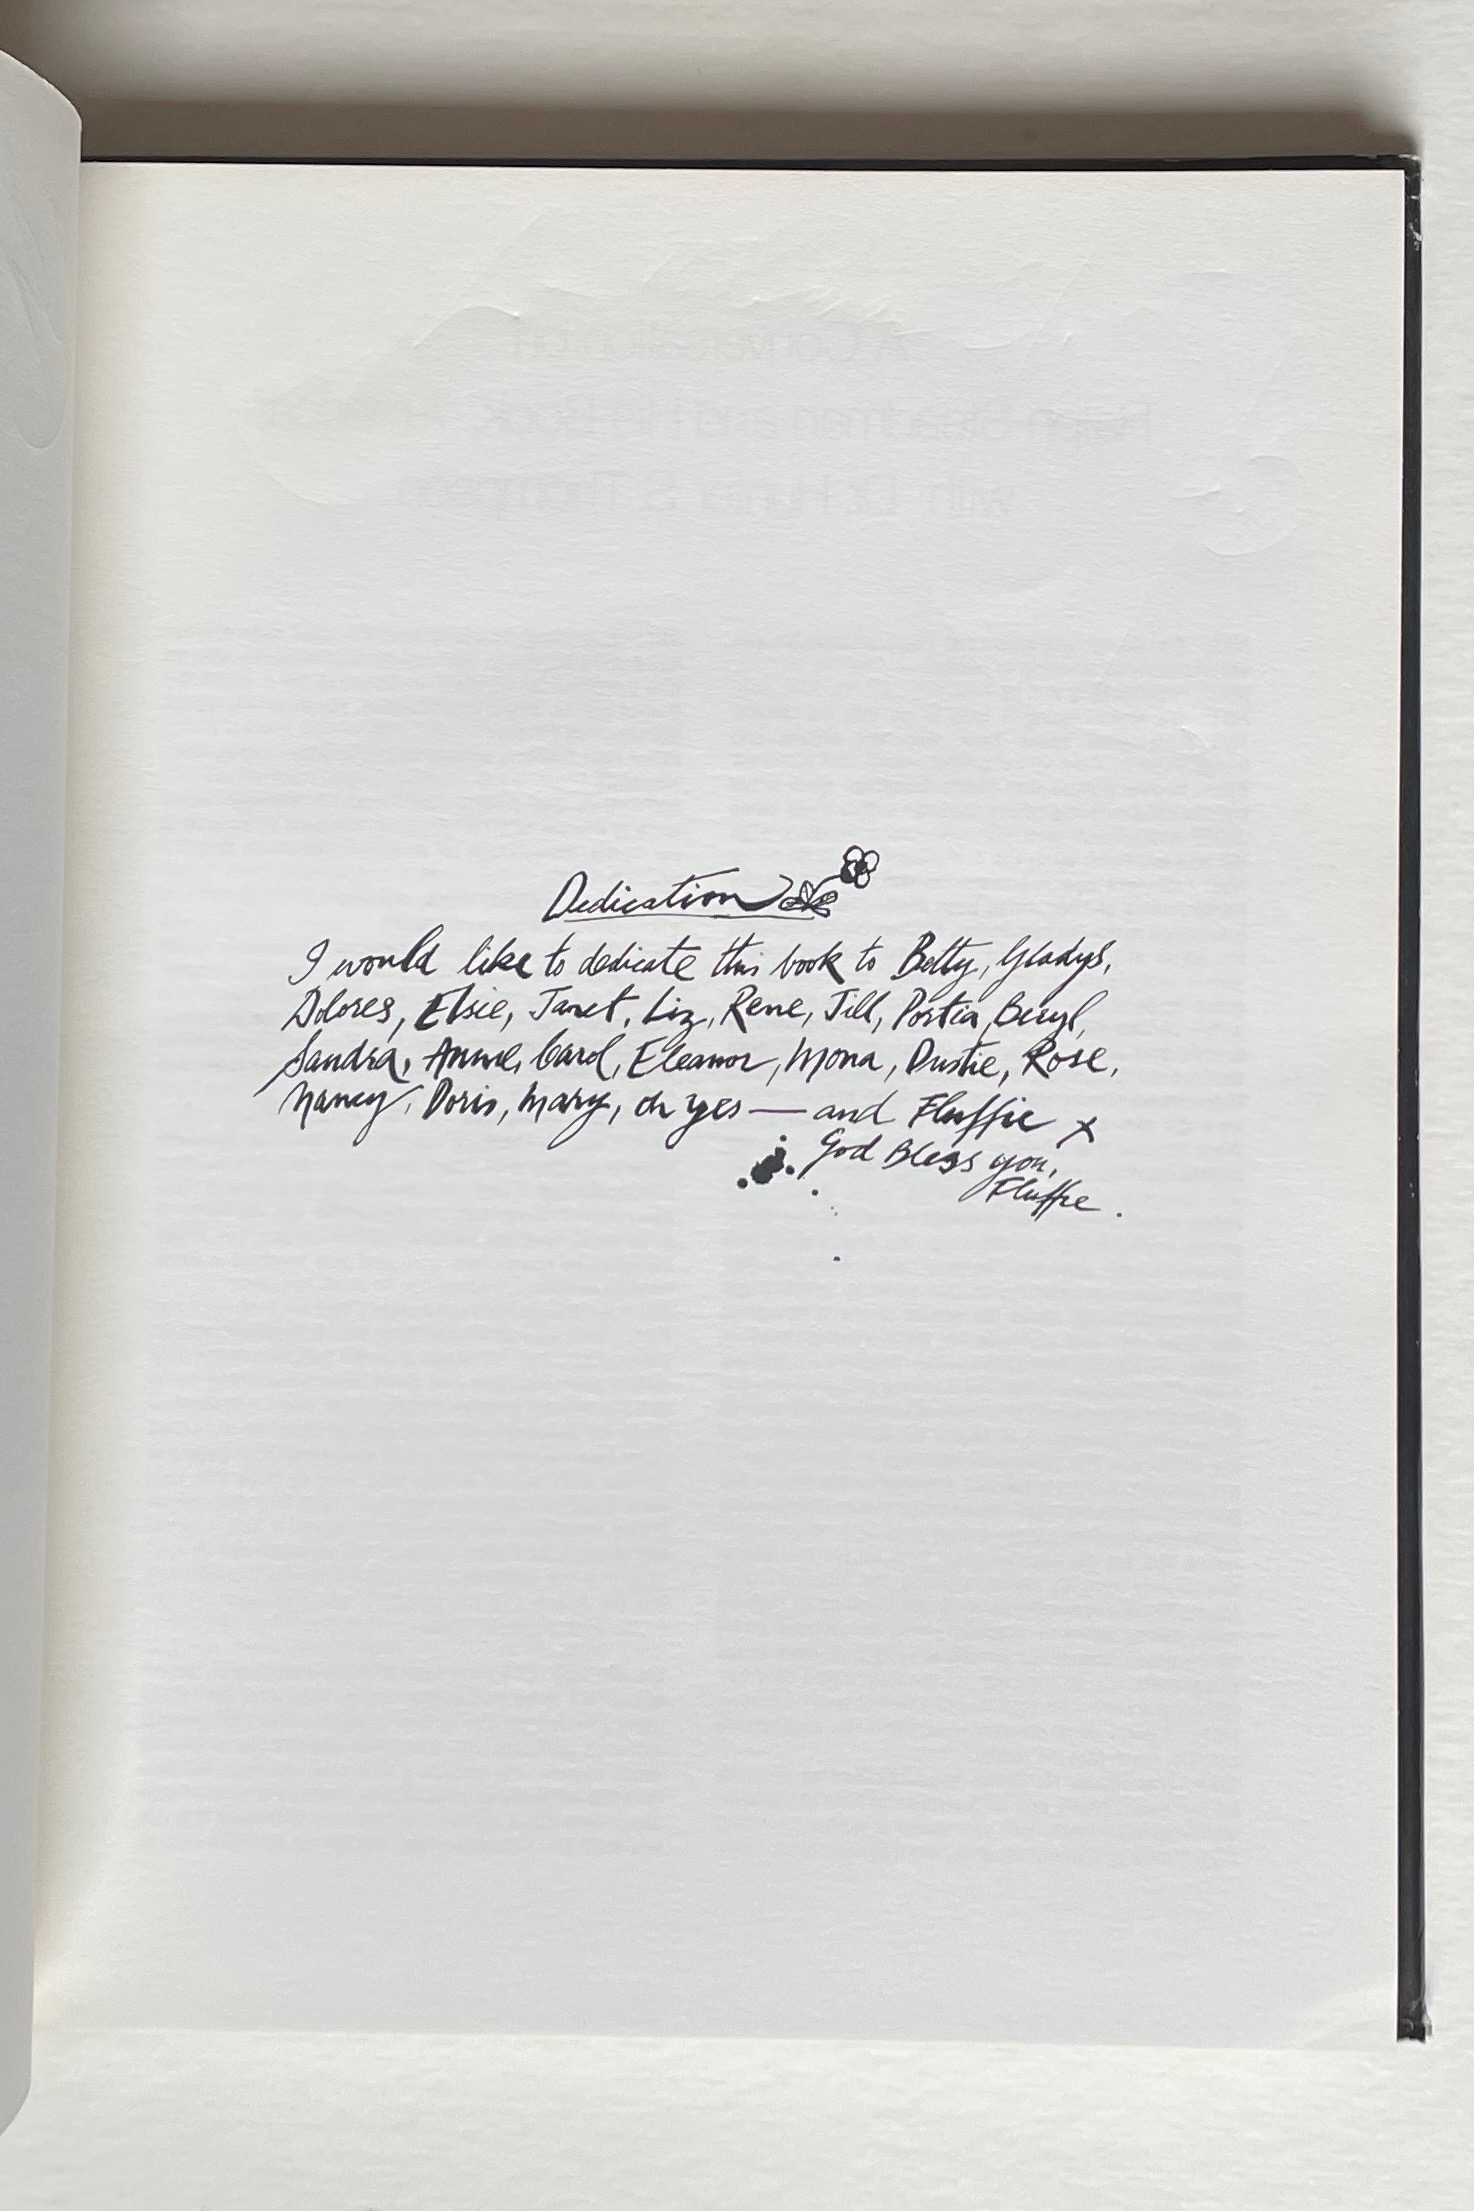 Dedication
I would like to dedicate this book to Betty, Gladys,
Dolores, Elsie, Janet, Liz, Rene, Jill, Portia, Beryl,
Sandra, Anne, Carol, Eleanor, Mona, Dustie, Rose,
Nancy, Doris, Mary, oh yes — and Fluffie x
God Bless you,
Fluffie.